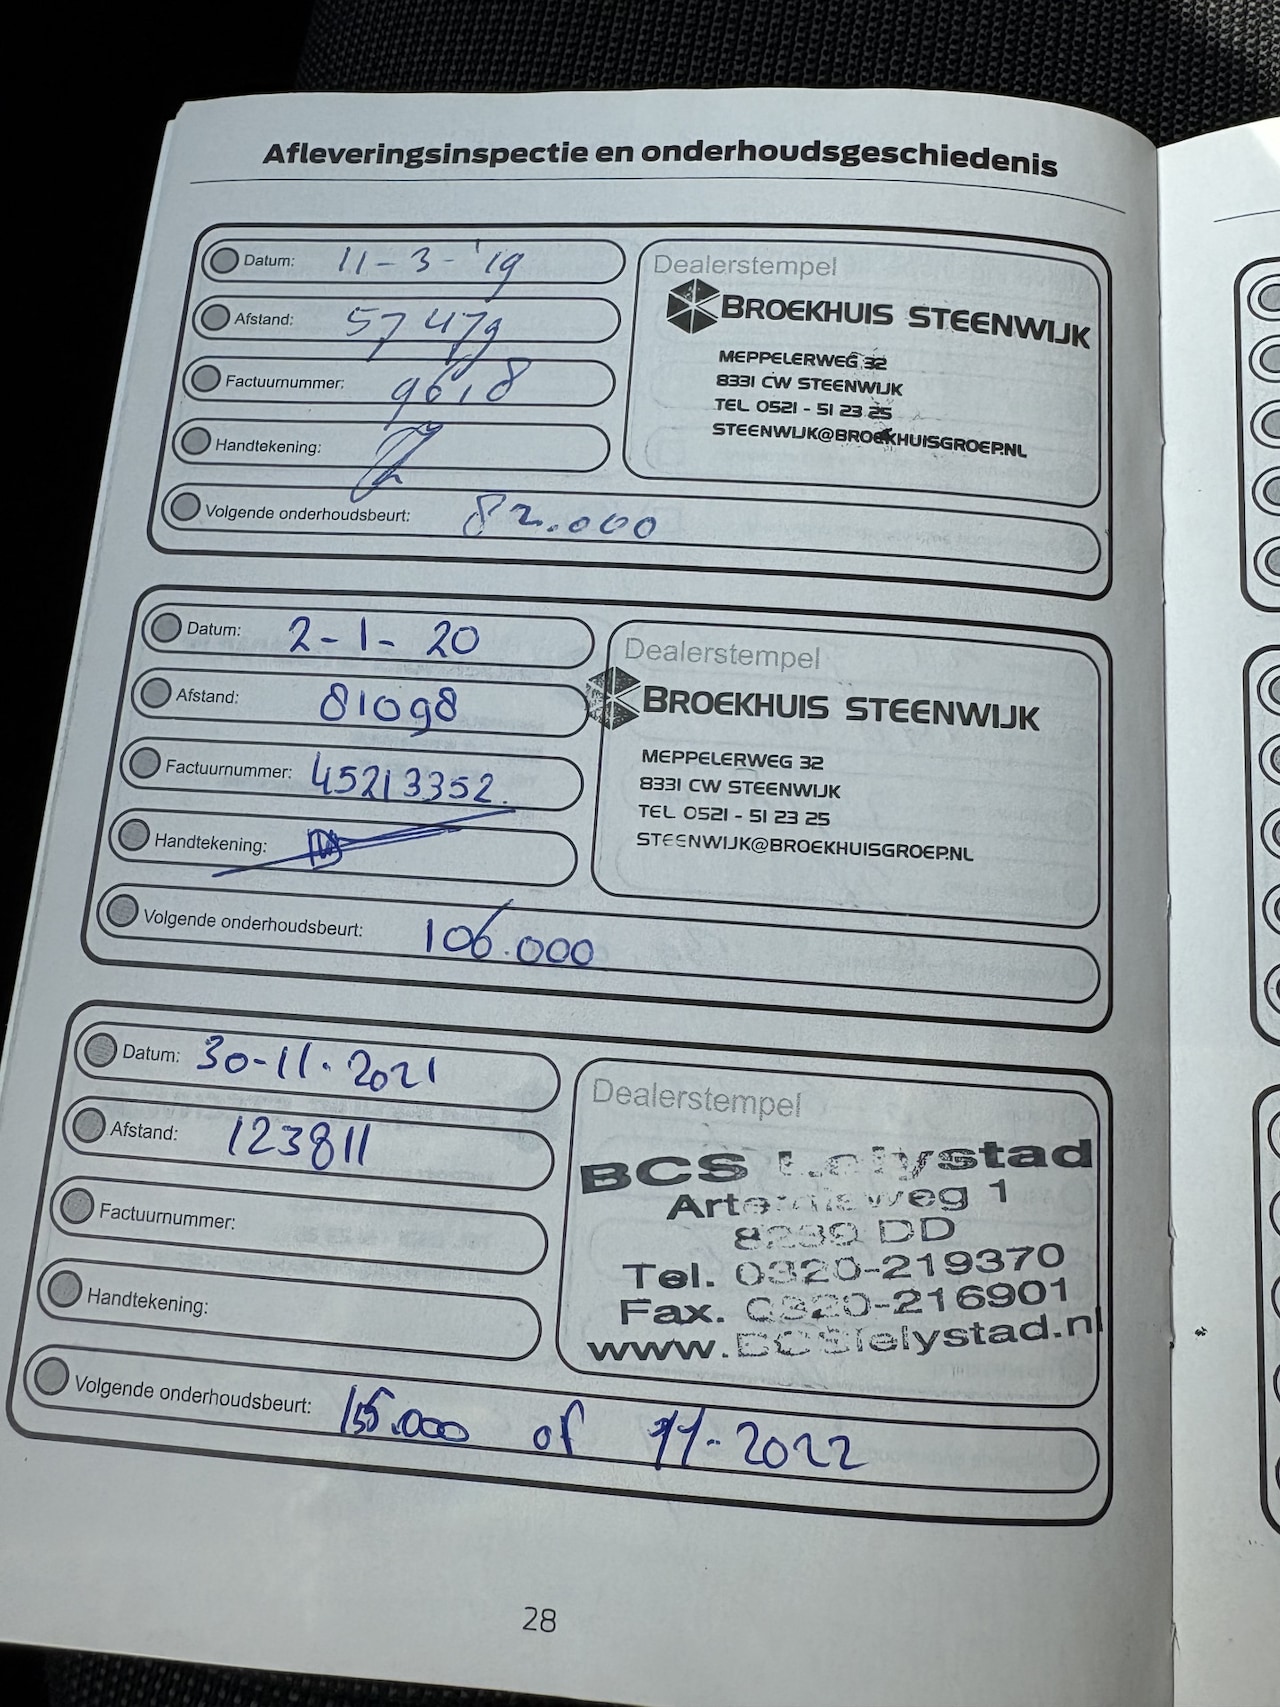 Afleveringsinspectie en onderhoudsgeschiedenis
Datum: 11-3-'19
Afstand: 57479
Factuurnummer:
Handtekening:
Volgende onderhoudsbeurt: 82.000
Dealerstempel
BROEKHUIS STEENWIJK
MEPPELERWEG 32
8331 CW STEENWIJK
TEL 0521 - 51 23 25
STEENWIJK@BROEKHUISGROEP.NL
Datum: 2-1-20
Afstand: 81098
Factuurnummer: 45213352.
Handtekening:
Volgende onderhoudsbeurt: 106.000
Dealerstempel
BROEKHUIS STEENWIJK
MEPPELERWEG 32
8331 CW STEENWIJK
TEL 0521 - 51 23 25
STEENWIJK@BROEKHUISGROEP.NL
Datum: 30-11-2021
Afstand: 123811
Factuurnummer:
Handtekening:
Volgende onderhoudsbeurt: of 11-2022
Dealerstempel
BCS Lelystad
Artemisweg 1
8239 DD
Tel. 0320-219370
Fax. 0320-216901
www.BCSlelystad.nl
28